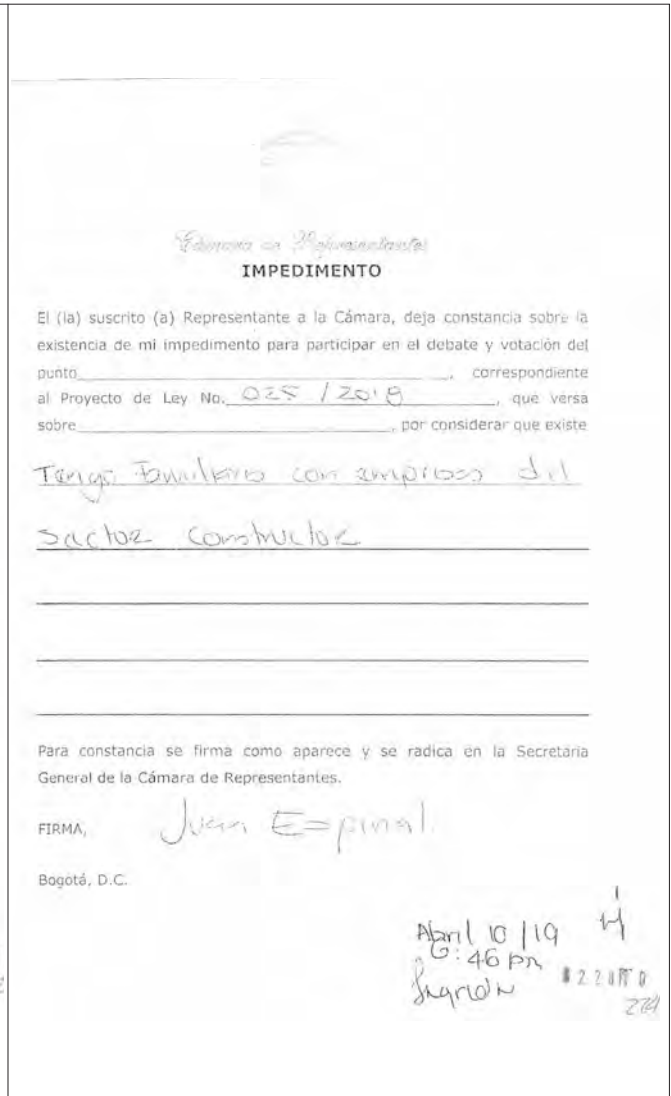 Cámara de Representantes
IMPEDIMENTO
El (la) suscrito (a) Representante a la Cámara, deja constancia sobre la
existencia de mi impedimento para participar en el debate y votación del
punto____, correspondiente
al Proyecto de Ley No. 025 / 2018, que versa
sobre____, por considerar que existe
Tengo Familiares con empresas del
sector constructor
Para constancia se firma como aparece y se radica en la Secretaría
General de la Cámara de Representantes.
FIRMA, Juan Espinal.
Bogotá, D.C.
Abril 10/19
6:46 pm